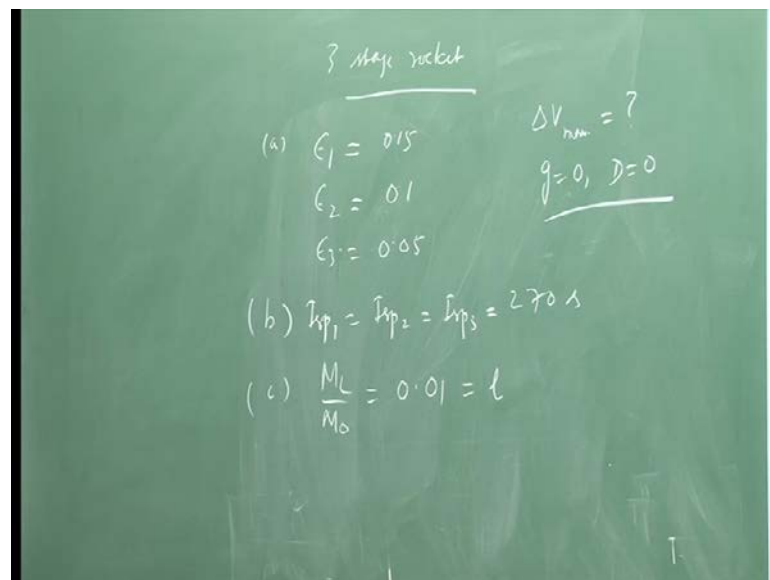 3 stage rocket
(a) ε₁ = 0.15
ε₂ = 0.1
ε₃ = 0.05
ΔV = ?
g=0, D=0
(b) Isp₁ = Isp₂ = Isp₃ = 270 s
(c) M_L/M_0 = 0.01 = l